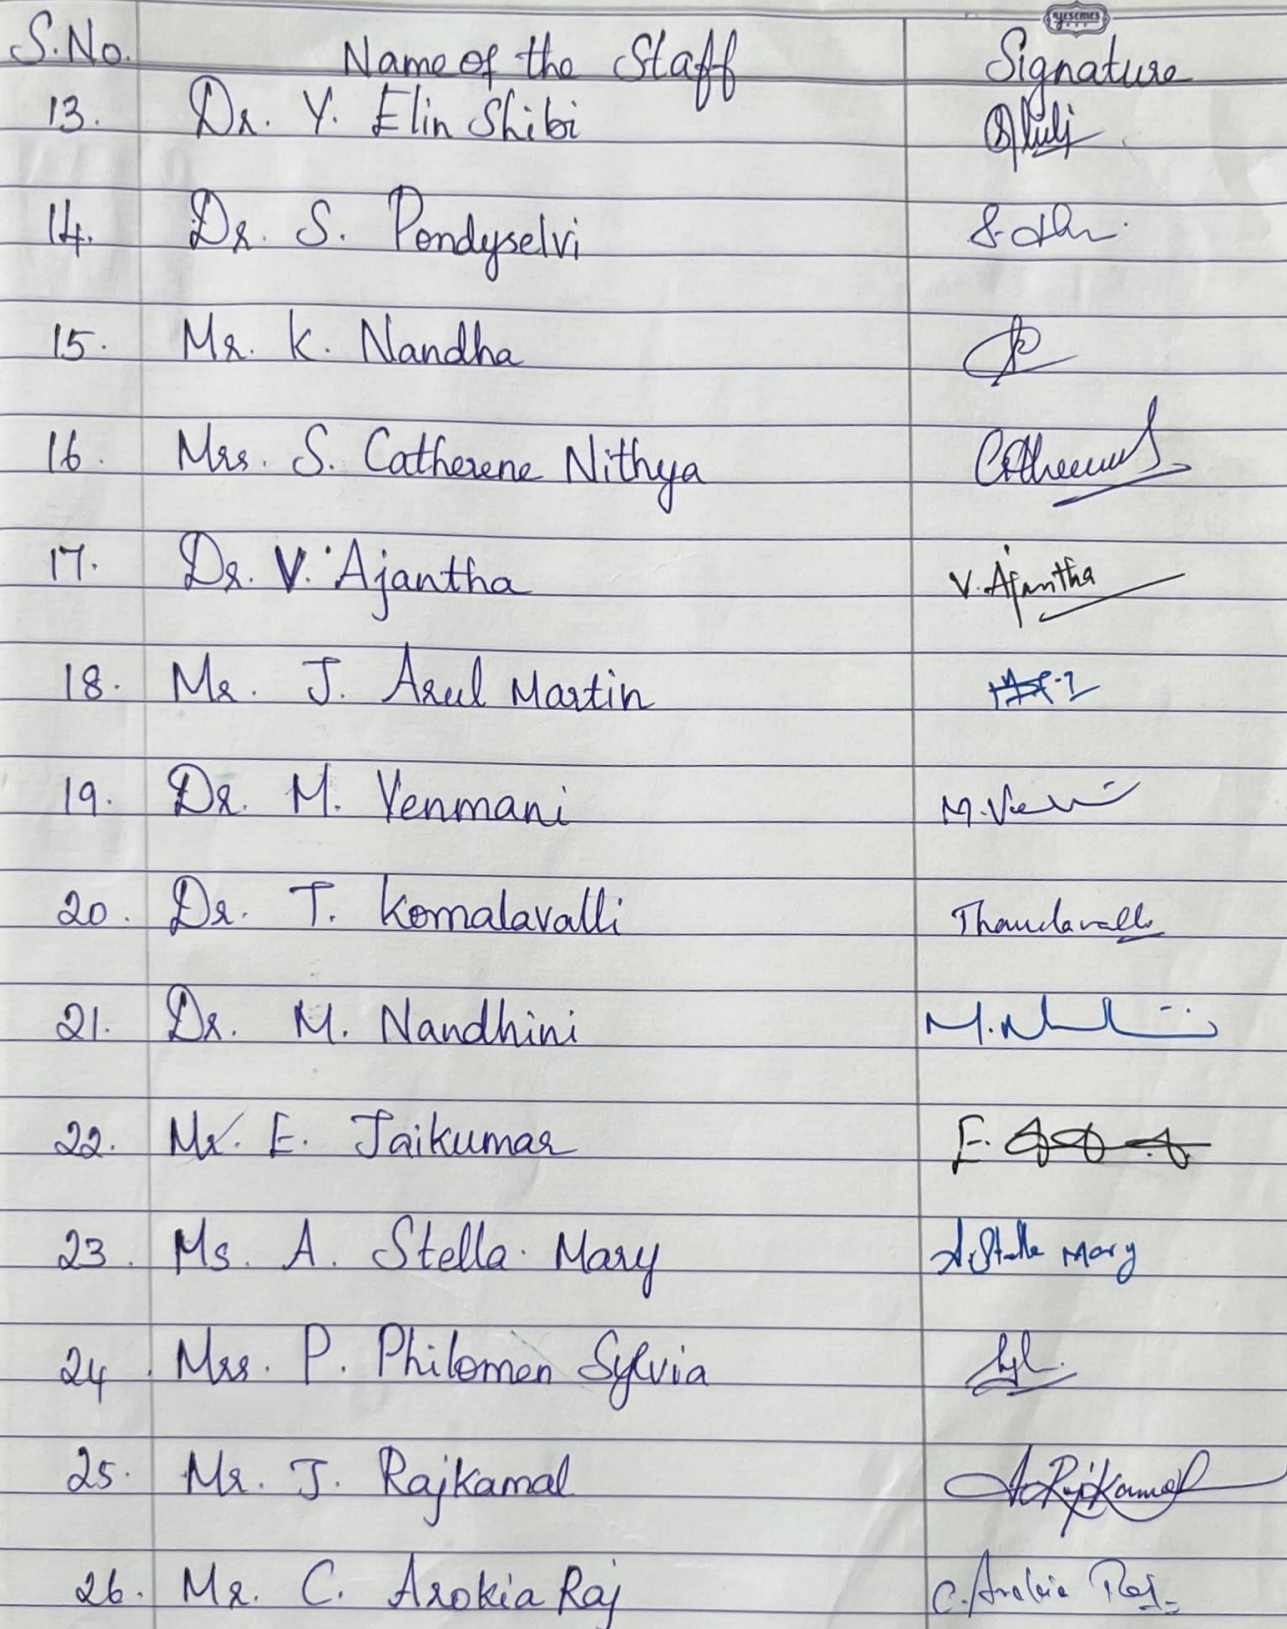 yesemes
S.No. Name of the Staff Signature
13. Dr. Y. Elin Shibi
14. Dr. S. Pondyselvi
15. Mr. K. Nandha
16. Mrs. S. Catherene Nithya
17. Dr. V. Ajantha V. Ajantha
18. Mr. J. Arul Martin
19. Dr. M. Venmani
20. Dr. T. Komalavalli
21. Dr. M. Nandhini
22. Mr. E. Jaikumar E.
23. Ms. A. Stella Mary A. Stella Mary
24. Mrs. P. Philomen Sylvia
25. Mr. J. Rajkamal Rajkamal
26. Mr. C. Arokia Raj C. Arokia Raj